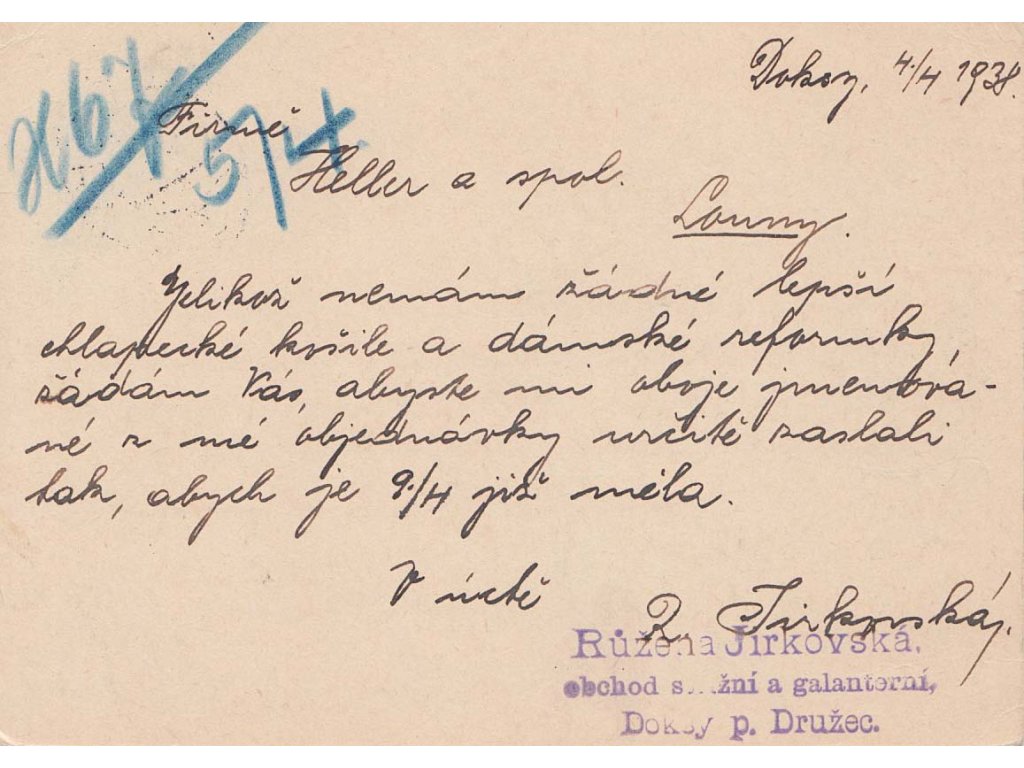 Doksy, 4./4 1938.
Firmě
Heller a spol.
Louny.
Jelikož nemám žádné lepší
chlapecké košile a dámské reformky,
žádám Vás, abyste mi oboje jmenova-
né z mé objednávky určitě zaslali
tak, abych je 9./4 již měla.
V úctě
R. Jirkovská.
Růžena Jirkovská,
obchod s žní a galanterní,
Doksy p. Družec.